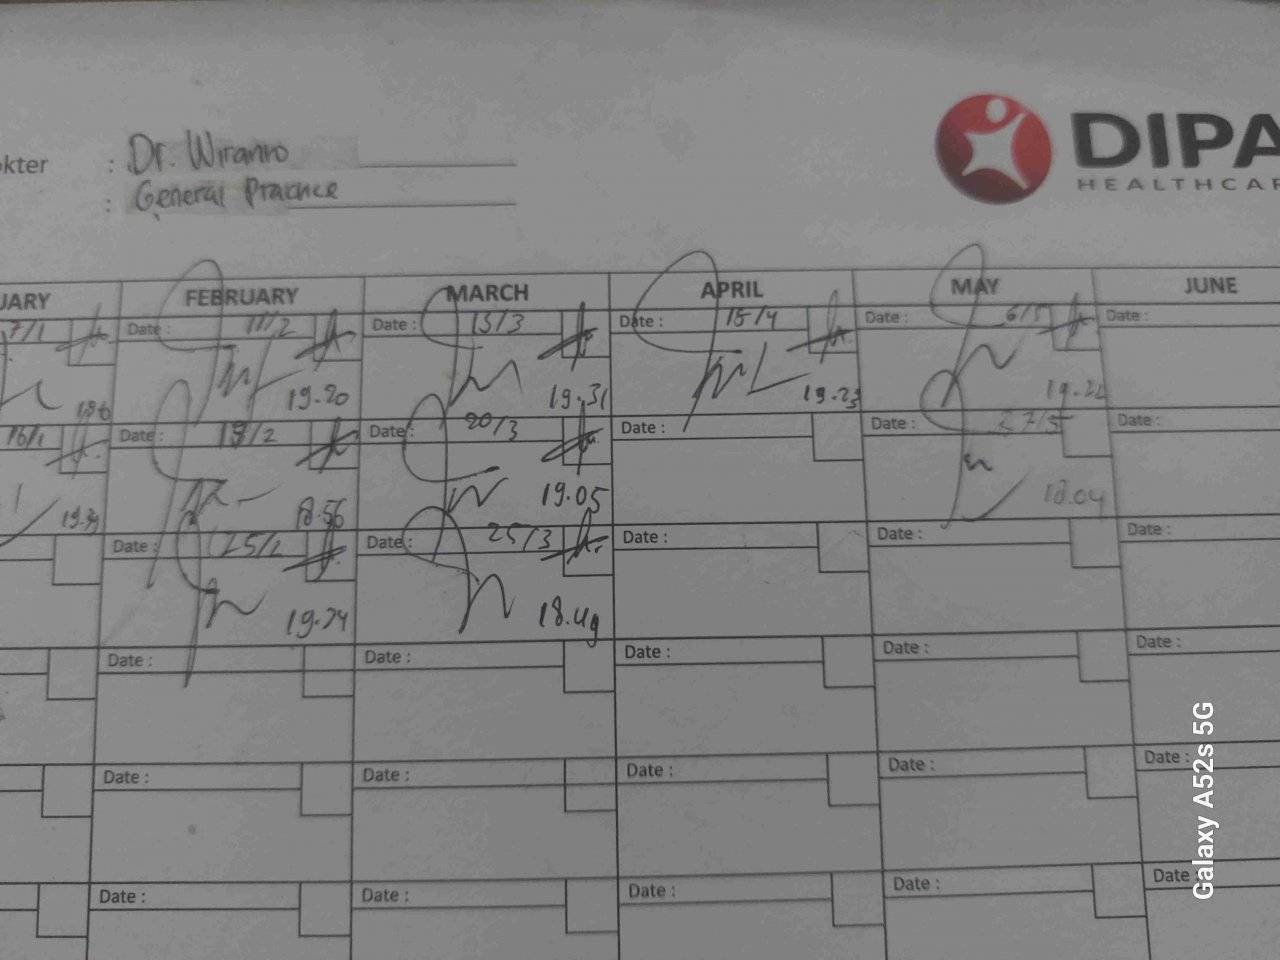 kter : Dr. Wiranro
: General Practice
DIPA
HEALTHCAR
UARY FEBRUARY MARCH APRIL MAY JUNE
7/1 Date : 11/2 Date : 15/3 Date : 15/4 Date : 6/5 Date :
19.20 19.31 19.23
16/1 Date : 19/2 Date : 20/3 Date : Date : 27/5 Date :
18.56 19.05 18.04
Date : 25/2 Date : 25/3 Date : Date : Date :
18.49
Date : Date : Date : Date : Date :
Date : Date : Date : Date : Date :
Date : Date : Date : Date : Date :
Galaxy A52s 5G